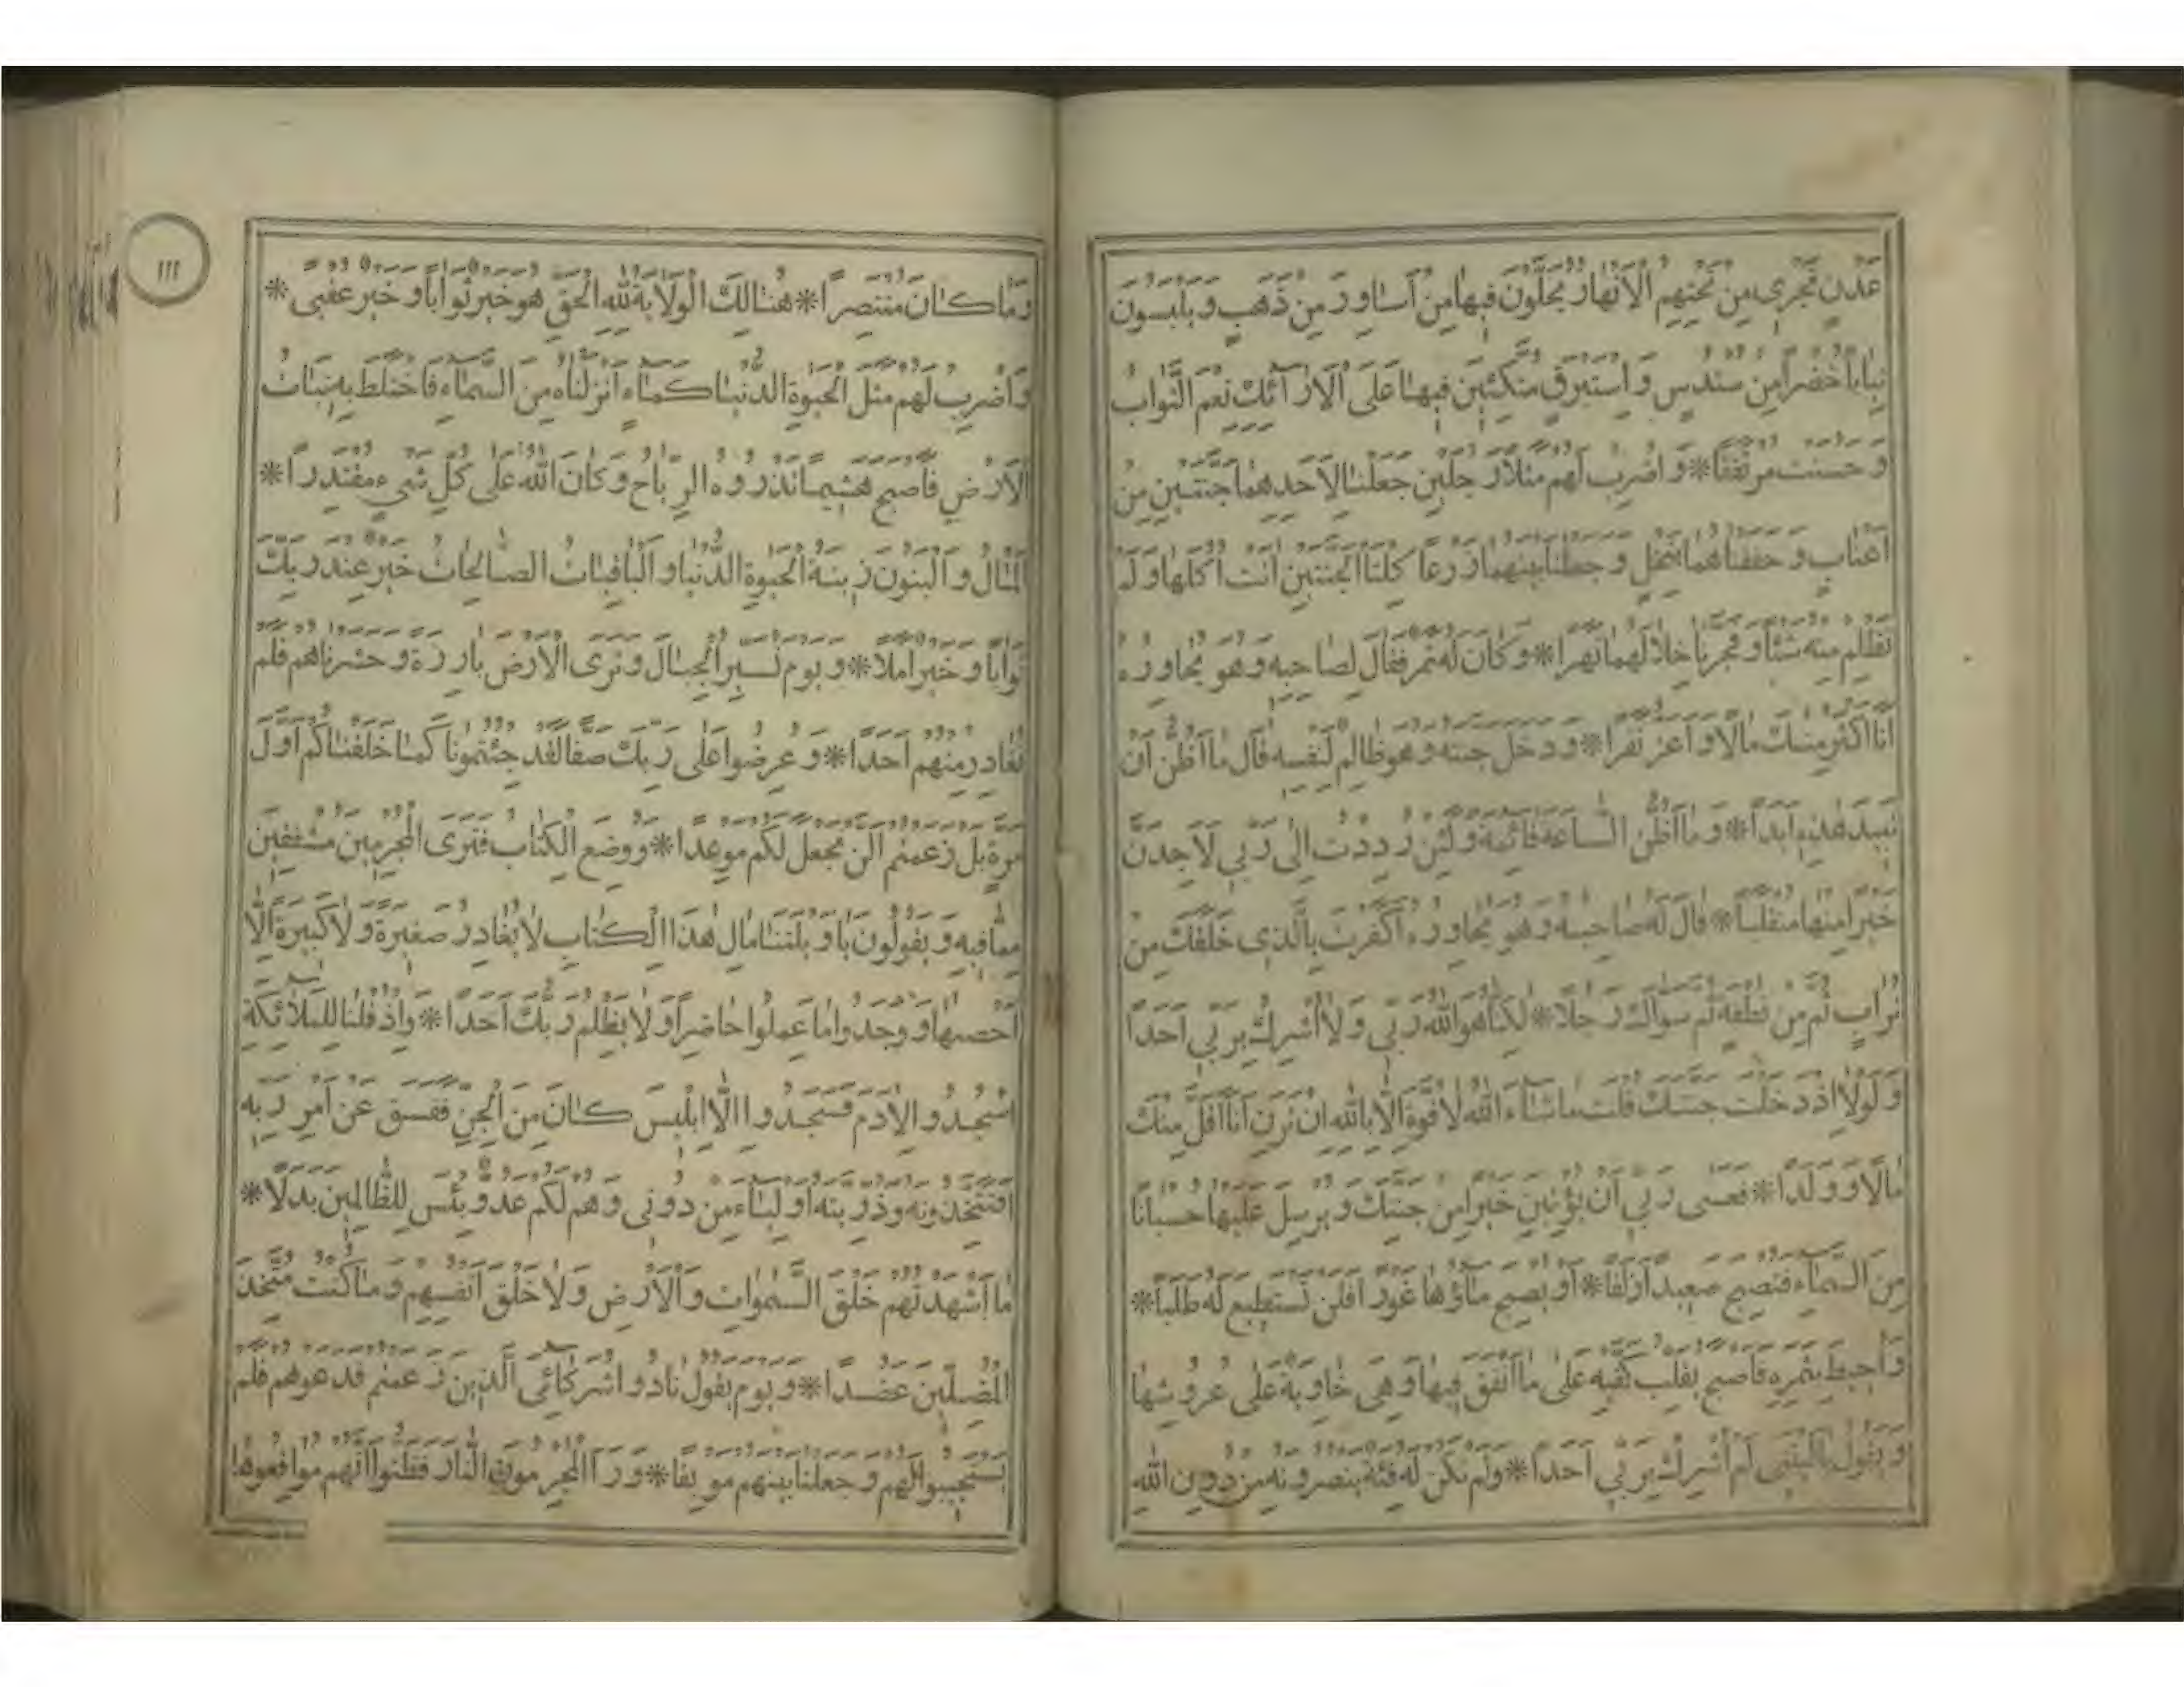 عَدْنٍ تَجْرِي مِنْ تَحْتِهِمُ الْاَنْهَارُ يُحَلَّوْنَ فِيهَا مِنْ اَسَاوِرَ مِنْ ذَهَبٍ وَ يَلْبَسُونَ
ثِيَابًا خُضْرًا مِنْ سُنْدُسٍ وَ اِسْتَبْرَقٍ مُتَّكِئِينَ فِيهَا عَلَى الْاَرَائِكِ نِعْمَ الثَّوَابُ
وَ حَسُنَتْ مُرْتَفَقًا * وَ اضْرِبْ لَهُمْ مَثَلًا رَجُلَيْنِ جَعَلْنَا لِاَحَدِهِمَا جَنَّتَيْنِ مِنْ
اَعْنَابٍ وَ حَفَفْنَاهُمَا بِنَخْلٍ وَ جَعَلْنَا بَيْنَهُمَا زَرْعًا كِلْتَا الْجَنَّتَيْنِ اٰتَتْ اُكُلَهَا وَ لَمْ
تَظْلِمْ مِنْهُ شَيْئًا وَ فَجَّرْنَا خِلَالَهُمَا نَهَرًا * وَ كَانَ لَهُ ثَمَرٌ فَقَالَ لِصَاحِبِهِ وَ هُوَ يُحَاوِرُهُ
اَنَا اَكْثَرُ مِنْكَ مَالًا وَ اَعَزُّ نَفَرًا * وَ دَخَلَ جَنَّتَهُ وَ هُوَ ظَالِمٌ لِنَفْسِهِ قَالَ مَا اَظُنُّ اَنْ
تَبِيدَ هٰذِهِ اَبَدًا * وَ مَا اَظُنُّ السَّاعَةَ قَائِمَةً وَ لَئِنْ رُدِدْتُ اِلٰى رَبِّي لَاَجِدَنَّ
خَيْرًا مِنْهَا مُنْقَلَبًا * قَالَ لَهُ صَاحِبُهُ وَ هُوَ يُحَاوِرُهُ اَكَفَرْتَ بِالَّذِي خَلَقَكَ مِنْ
تُرَابٍ ثُمَّ مِنْ نُطْفَةٍ ثُمَّ سَوَّاكَ رَجُلًا * لٰكِنَّا هُوَ اللّٰهُ رَبِّي وَ لَا اُشْرِكُ بِرَبِّي اَحَدًا
وَ لَوْلَا اِذْ دَخَلْتَ جَنَّتَكَ قُلْتَ مَا شَاءَ اللّٰهُ لَا قُوَّةَ اِلَّا بِاللّٰهِ اِنْ تَرَنِ اَنَا اَقَلَّ مِنْكَ
مَالًا وَ وَلَدًا * فَعَسٰى رَبِّي اَنْ يُؤْتِيَنِ خَيْرًا مِنْ جَنَّتِكَ وَ يُرْسِلَ عَلَيْهَا حُسْبَانًا
مِنَ السَّمَاءِ فَتُصْبِحَ صَعِيدًا زَلَقًا * اَوْ يُصْبِحَ مَاؤُهَا غَوْرًا فَلَنْ تَسْتَطِيعَ لَهُ طَلَبًا *
وَ اُحِيطَ بِثَمَرِهِ فَاَصْبَحَ يُقَلِّبُ كَفَّيْهِ عَلٰى مَا اَنْفَقَ فِيهَا وَ هِيَ خَاوِيَةٌ عَلٰى عُرُوشِهَا
وَ يَقُولُ يَا لَيْتَنِي لَمْ اُشْرِكْ بِرَبِّي اَحَدًا * وَ لَمْ تَكُنْ لَهُ فِئَةٌ يَنْصُرُونَهُ مِنْ دُونِ اللّٰهِ
١١١
وَ مَا كَانَ مُنْتَصِرًا * هُنَالِكَ الْوَلَايَةُ لِلّٰهِ الْحَقِّ هُوَ خَيْرٌ ثَوَابًا وَ خَيْرٌ عُقْبًى *
وَ اضْرِبْ لَهُمْ مَثَلَ الْحَيٰوةِ الدُّنْيَا كَمَاءٍ اَنْزَلْنَاهُ مِنَ السَّمَاءِ فَاخْتَلَطَ بِهِ نَبَاتُ
الْاَرْضِ فَاَصْبَحَ هَشِيمًا تَذْرُوهُ الرِّيَاحُ وَ كَانَ اللّٰهُ عَلٰى كُلِّ شَيْءٍ مُقْتَدِرًا *
اَلْمَالُ وَ الْبَنُونَ زِينَةُ الْحَيٰوةِ الدُّنْيَا وَ الْبَاقِيَاتُ الصَّالِحَاتُ خَيْرٌ عِنْدَ رَبِّكَ
ثَوَابًا وَ خَيْرٌ اَمَلًا * وَ يَوْمَ نُسَيِّرُ الْجِبَالَ وَ تَرَى الْاَرْضَ بَارِزَةً وَ حَشَرْنَاهُمْ فَلَمْ
نُغَادِرْ مِنْهُمْ اَحَدًا * وَ عُرِضُوا عَلٰى رَبِّكَ صَفًّا لَقَدْ جِئْتُمُونَا كَمَا خَلَقْنَاكُمْ اَوَّلَ
مَرَّةٍ بَلْ زَعَمْتُمْ اَلَّنْ نَجْعَلَ لَكُمْ مَوْعِدًا * وَ وُضِعَ الْكِتَابُ فَتَرَى الْمُجْرِمِينَ مُشْفِقِينَ
مِمَّا فِيهِ وَ يَقُولُونَ يَا وَيْلَتَنَا مَالِ هٰذَا الْكِتَابِ لَا يُغَادِرُ صَغِيرَةً وَ لَا كَبِيرَةً اِلَّا
اَحْصٰيهَا وَ وَجَدُوا مَا عَمِلُوا حَاضِرًا وَ لَا يَظْلِمُ رَبُّكَ اَحَدًا * وَ اِذْ قُلْنَا لِلْمَلَائِكَةِ
اسْجُدُوا لِاٰدَمَ فَسَجَدُوا اِلَّا اِبْلِيسَ كَانَ مِنَ الْجِنِّ فَفَسَقَ عَنْ اَمْرِ رَبِّهِ
اَفَتَتَّخِذُونَهُ وَ ذُرِّيَّتَهُ اَوْلِيَاءَ مِنْ دُونِي وَ هُمْ لَكُمْ عَدُوٌّ بِئْسَ لِلظَّالِمِينَ بَدَلًا *
مَا اَشْهَدْتُهُمْ خَلْقَ السَّمٰوَاتِ وَ الْاَرْضِ وَ لَا خَلْقَ اَنْفُسِهِمْ وَ مَا كُنْتُ مُتَّخِذَ
الْمُضِلِّينَ عَضُدًا * وَ يَوْمَ يَقُولُ نَادُوا شُرَكَائِيَ الَّذِينَ زَعَمْتُمْ فَدَعَوْهُمْ فَلَمْ
يَسْتَجِيبُوا لَهُمْ وَ جَعَلْنَا بَيْنَهُمْ مَوْبِقًا * وَ رَاَ الْمُجْرِمُونَ النَّارَ فَظَنُّوا اَنَّهُمْ مُوَاقِعُوهَا